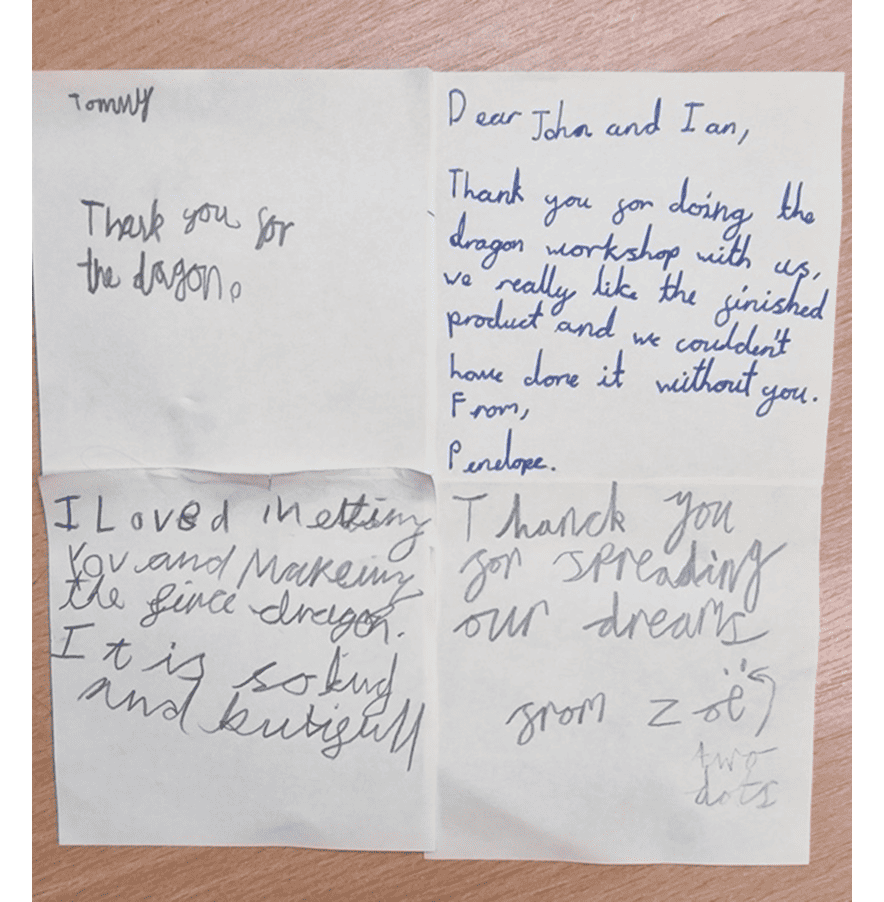 Tommy
Thank you for
the dragon.
Dear John and Ian,
Thank you for doing the
dragon workshop with us,
we really like the finished
product and we coulden't
have done it without you.
From,
Penelope.
I Loved Metting
You and Makeing
the fince dragon.
It is so
and butifull
Thanck you
for spreading
our dreams
from Zoë
two
dots